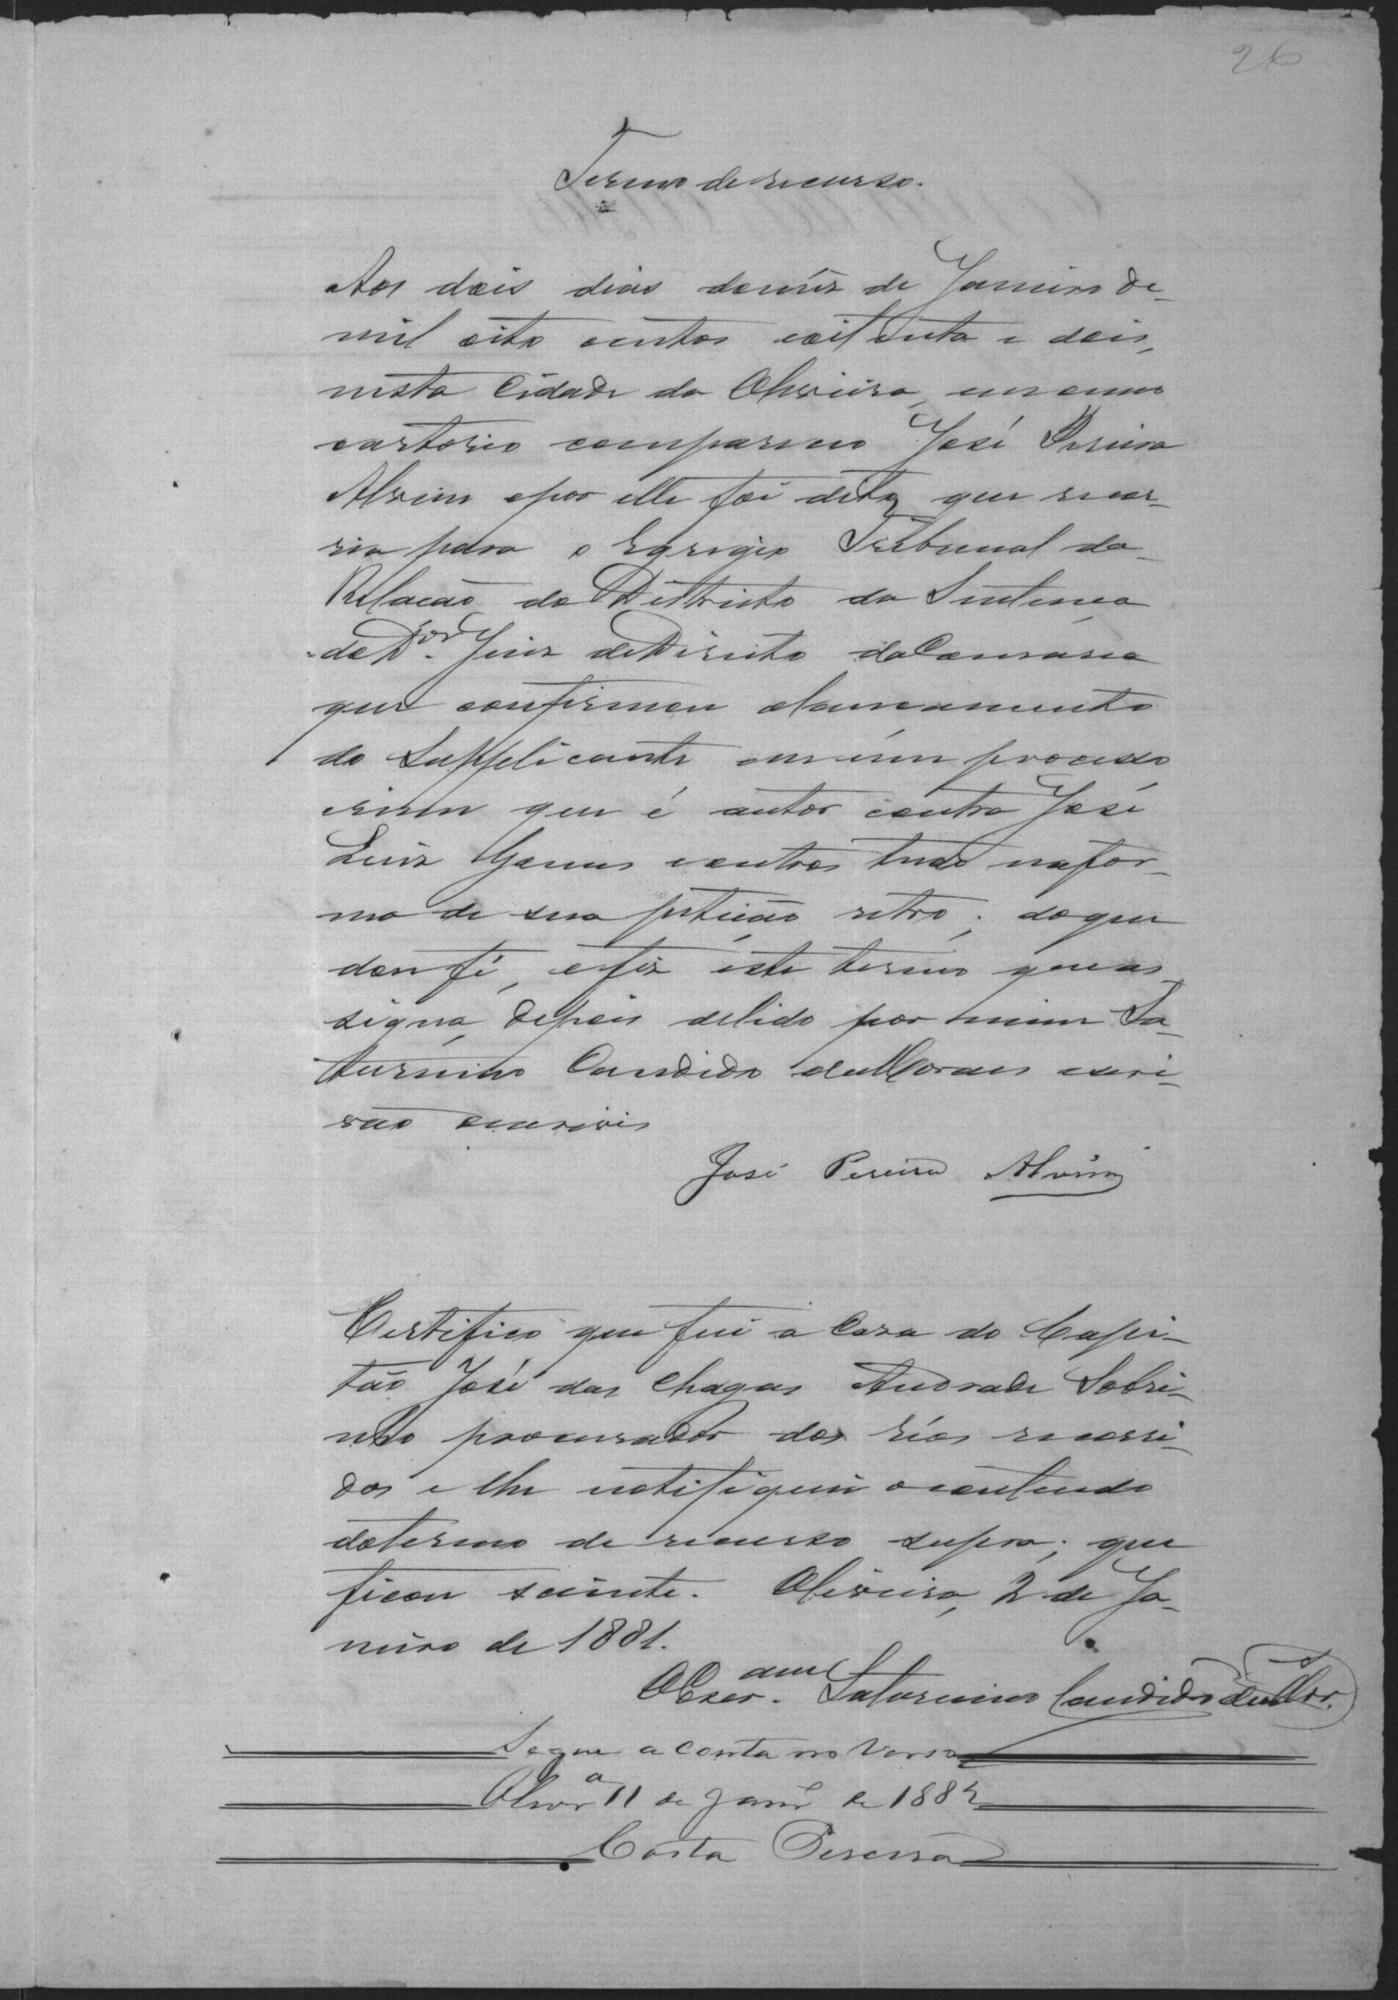 26
Termo de recurso.
Aos dois dias do mêz de Janeiro de
mil oito centos e oitenta e dois,
nesta Cidade da Oliveira, em meu
cartorio compareceo José Pereira
Alvim e por elle foi dito que recor-
ria para o Egregio Tribunal da
Relação do Districto da Sentença
do Dor. Juiz de Direito da Comarca
que confirmou o lançamento
do Supplicante em um processo
crime que é autor contra José
Luiz Gomes e outros tudo na for-
ma de sua petição retro; do que
dou fé, e fiz este termo que as
signa, depois de lido por mim Sa-
turnino Candido de Moraes escri-
vão o escrivi
José Pereira Alvim
Certifico que fui a Caza do Capi-
tão José das Chagas Andrade Sobri-
nho procurador dos réos recorri-
dos e lhe notifiquei o contendo
do termo de recurso supra; que
ficou sciente. Oliveira, 2 de Ja-
neiro de 1881.
O Escr.am Saturnino Candido de Mor.
Segue a conta no verso
Olivra 11 de Janro de 1882
Costa Pereira